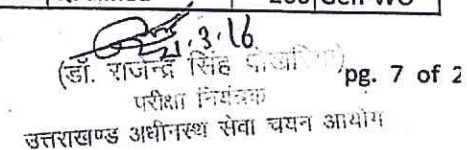 200 Gen-WO
21.3.16
(डॉ. राजेन्द्र सिंह पोखरिया)
pg. 7 of 2
परीक्षा नियंत्रक
उत्तराखण्ड अधीनस्थ सेवा चयन आयोग